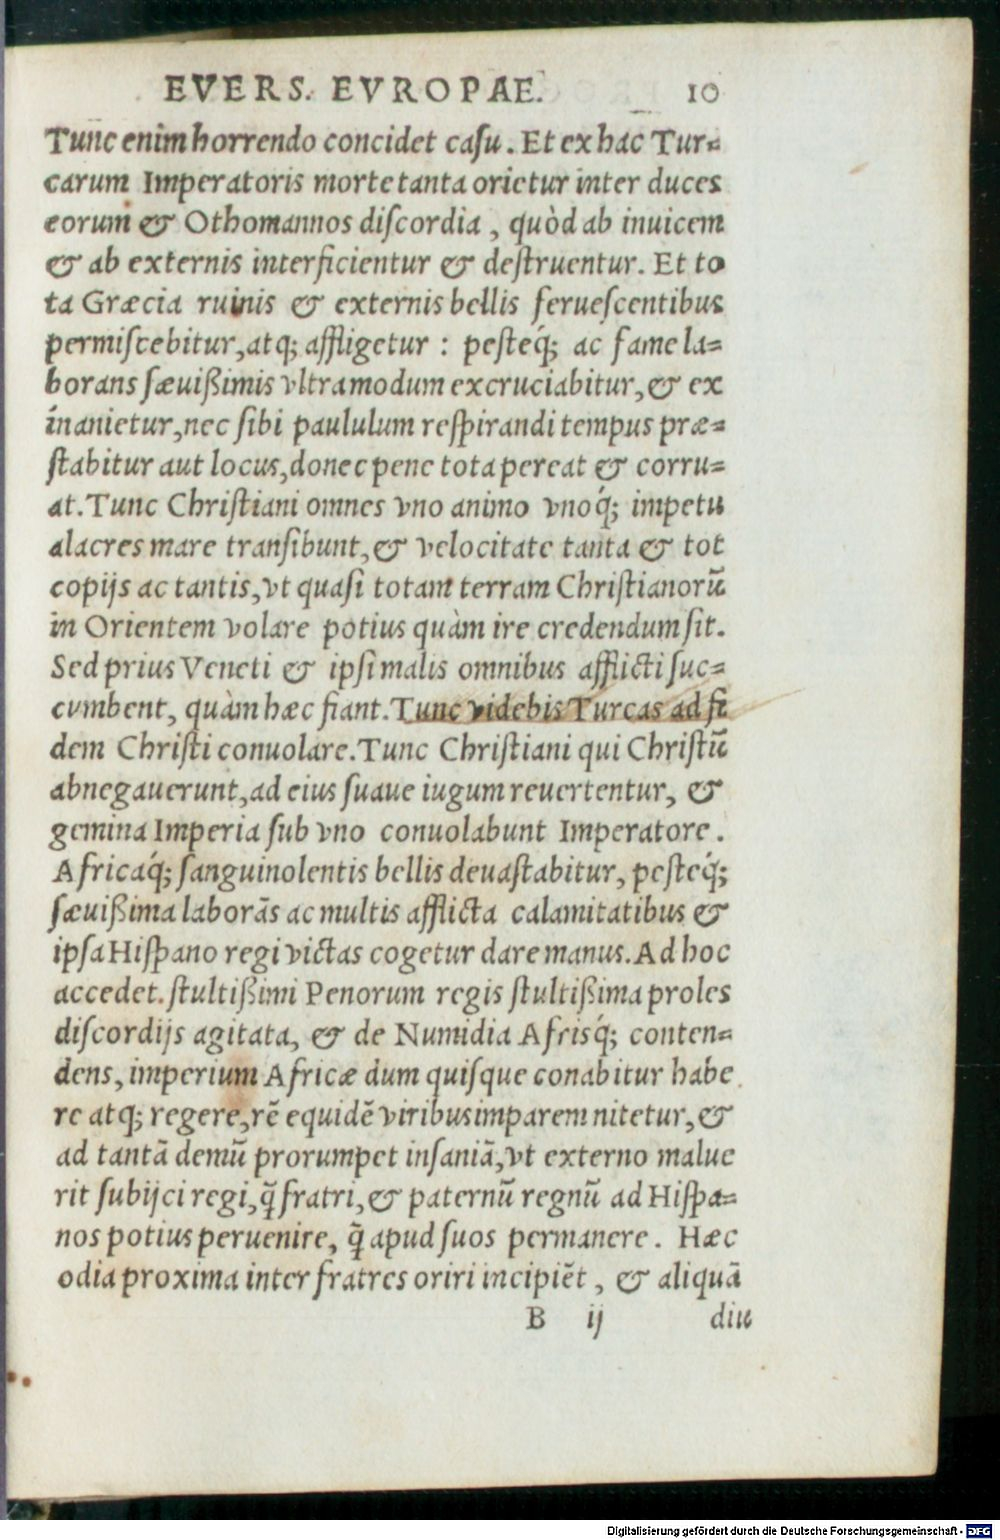 EVERS. EVROPAE. 10
Tunc enim horrendo concidet caſu. Et ex hac Tur-
carum Imperatoris morte tanta orietur inter duces
eorum & Othomannos diſcordia, quòd ab inuicem
& ab externis interficientur & deſtruentur. Et to
ta Græcia ruinis & externis bellis ferueſcentibus
permiſcebitur, atq; affligetur : peſteq́; ac fame la-
borans ſæuißimis vltra modum excruciabitur, & ex
inanietur, nec ſibi paululum reſpirandi tempus præ-
ſtabitur aut locus, donec pene tota pereat & corru-
at. Tunc Chriſtiani omnes vno animo vnoq́; impetu
alacres mare tranſibunt, & velocitate tanta & tot
copijs ac tantis, vt quaſi totam terram Chriſtianorũ
in Orientem volare potius quàm ire credendum ſit.
Sed prius Veneti & ipſi malis omnibus afflicti ſuc-
cvmbent, quàm hæc fiant. Tunc videbis Turcas ad fi
dem Chriſti conuolare. Tunc Chriſtiani qui Chriſtũ
abnegauerunt, ad eius ſuaue iugum reuertentur, &
gemina Imperia ſub vno conuolabunt Imperatore.
Africaq́; ſanguinolentis bellis deuaſtabitur, peſteq́;
ſæuißima laborãs ac multis afflicta calamitatibus &
ipſa Hiſpano regi victas cogetur dare manus. Ad hoc
accedet. ſtultißimi Penorum regis ſtultißima proles
diſcordijs agitata, & de Numidia Afrisq́; conten-
dens, imperium Africæ dum quiſque conabitur habe
re atq; regere, rẽ equidẽ viribus imparem nitetur, &
ad tantã demũ prorumpet inſaniã, vt externo malue
rit ſubijci regi, q̃ fratri, & paternũ regnũ ad Hiſpa-
nos potius peruenire, q̃ apud ſuos permanere. Hæc
odia proxima inter fratres oriri incipiẽt, & aliquã
B ij diu
Digitalisierung gefördert durch die Deutsche Forschungsgemeinschaft - DFG